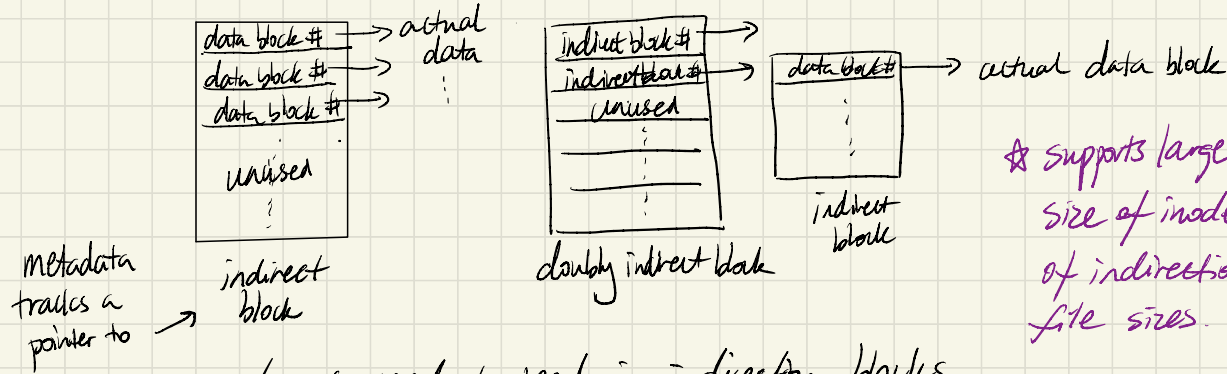 data block #
data block #
data block #
unused
actual
data
indirect
block
metadata
tracks a
pointer to
indirect block #
indirect block #
unused
doubly indirect block
data block #
indirect
block
actual data block
☆ supports large
size of inod
of indirectio
file sizes.
in indirection blocks